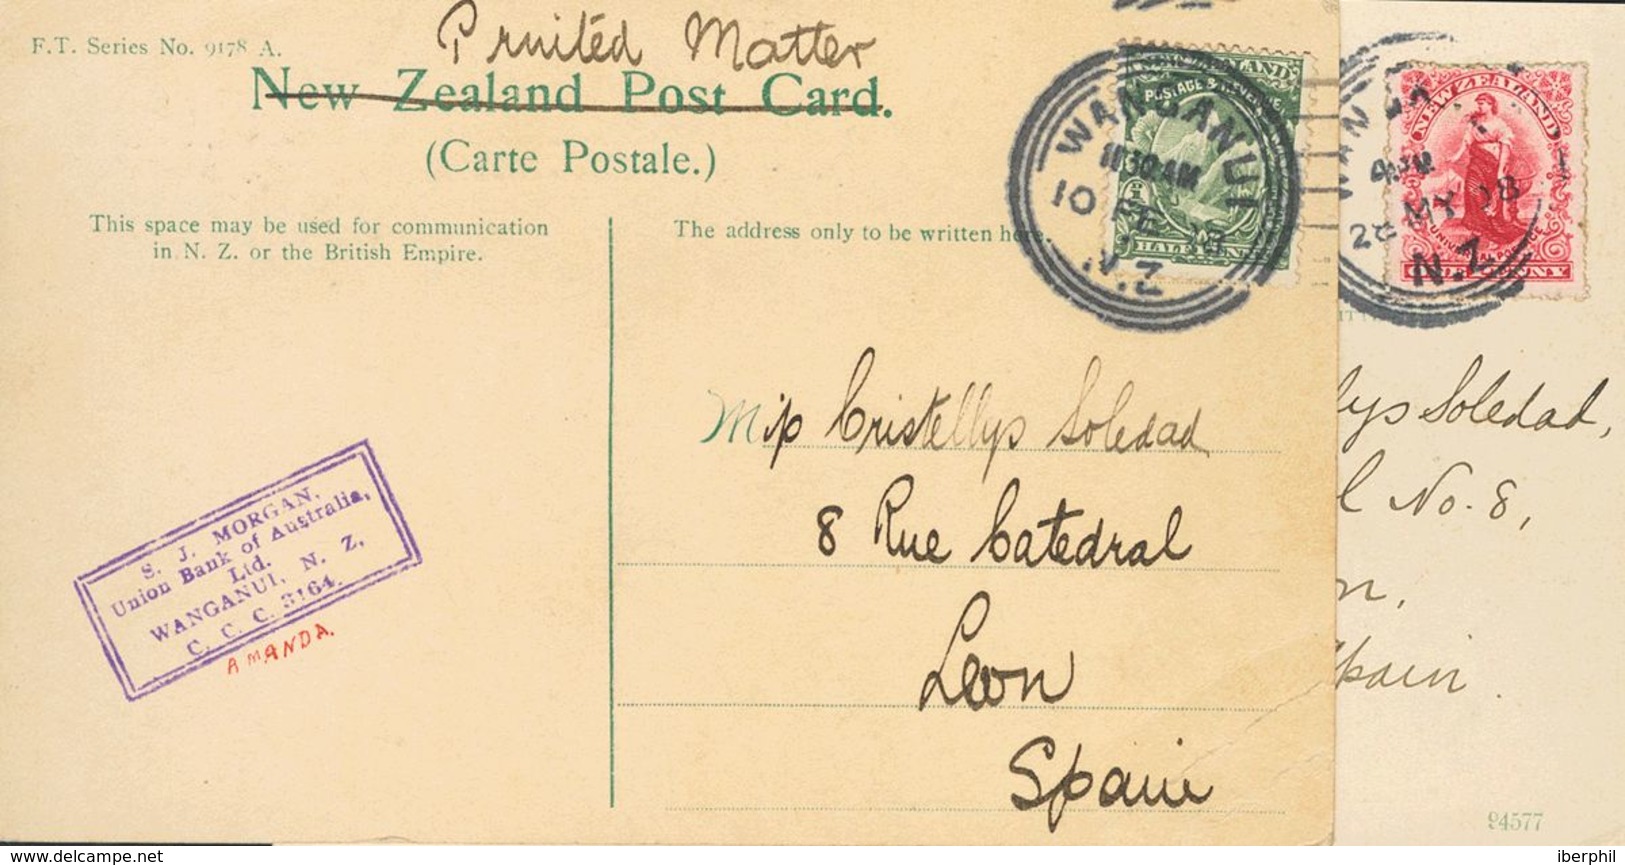 Printed Matter
F.T. Series No. 9178 A.
New Zealand Post Card.
(Carte Postale.)
This space may be used for communication
in N. Z. or the British Empire.
The address only to be written here.
NEW ZEALAND
POSTAGE & REVENUE
HALF
WANGANUI
11 30 AM
10 FE 08
N.Z
Cristellys Soledad
8 Rue Catedral
Leon
Spain
S. J. MORGAN,
Union Bank of Australia,
Ltd.
WANGANUI, N. Z.
C. C. C. 3164.
AMANDA.
NEW ZEALAND
UNIVERSAL POSTAGE
ONE PENNY
MY 08
N.Z
lys Soledad,
l No. 8,
on,
Spain.
94577
www.delcampe.net
iberphil